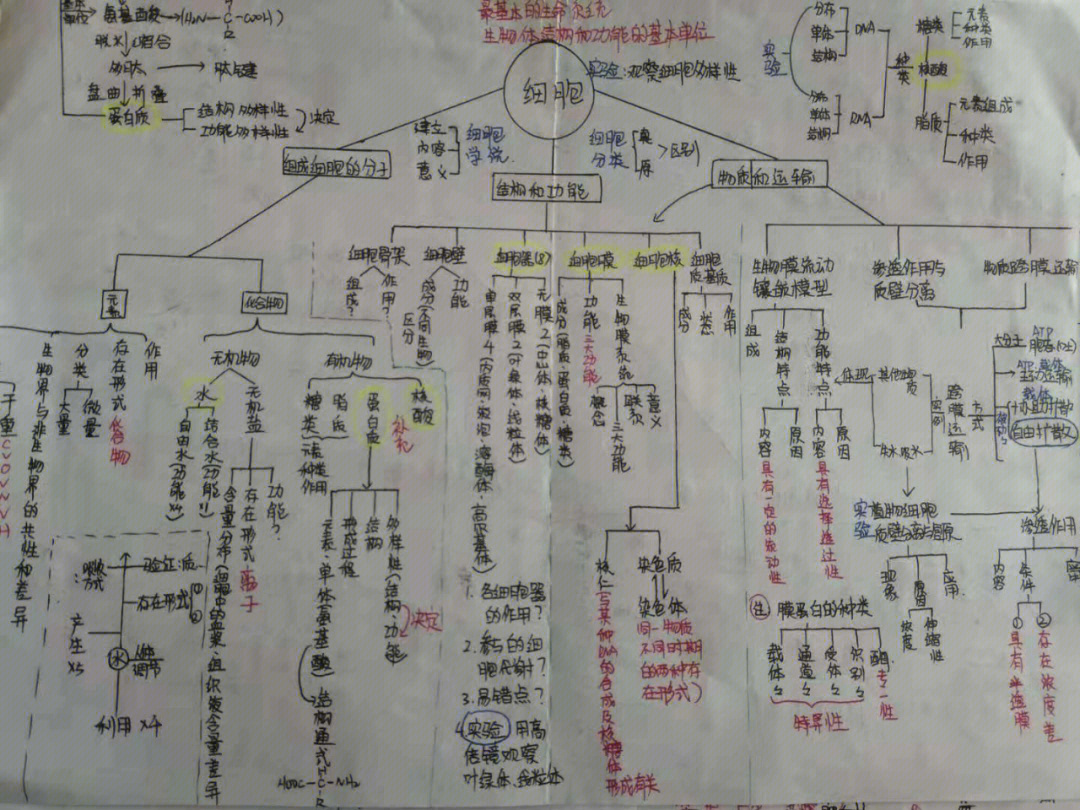 最基本的生命系统
生物体结构和功能的基本单位
细胞
实验:观察细胞多样性
氨基酸
脱水缩合
多肽
肽键
盘曲折叠
蛋白质
结构多样性
功能多样性
决定
建立
内容
意义
细胞学说
细胞分类
真
原
区别
实验
分布
单体
结构
DNA
分布
单体
结构
RNA
种类
核酸
糖类
元素
种类
作用
脂质
元素组成
种类
作用
组成细胞的分子
结构和功能
物质和运输
元素
化合物
生物界与非生物界的共性和差异
分类
大量
微量
存在形式
化合物
作用
无机物
水
自由水(功能x4)
结合水(功能x1)
无机盐
含量分布
存在形式
离子
功能?
有机物
糖类
脂质
元素种类作用
蛋白质
核酸
补充
元素·单体氨基酸
形成过程
结构
多样性(结构·功能)
决定
结构通式
HOOC-C-NH₂
H
R
吸收方式
产生x5
水
利用x4
验证:质
存在形式
①
②
调节
细胞骨架
组成?
作用?
细胞壁
成分(不同生物)
区分
功能
细胞器(8)
单层膜4(内质网·液泡·溶酶体·高尔基体)
双层膜2(叶绿体·线粒体)
无膜2(中心体·核糖体)
1. 各细胞器的作用?
2. 参与的细胞代谢?
3. 易错点?
4. 实验 用高倍镜观察叶绿体、线粒体
细胞膜
成分(脂质·蛋白质·糖类)
功能
三大功能
生物膜系统
概念
联系
三大功能
意义
细胞核
核仁
与某种RNA的合成及核糖体形成有关
染色质
染色体
同一物质不同时期的两种存在形式)
细胞质基质
成分
状态
作用
生物膜流动镶嵌模型
组成
结构特点
内容
具有一定的流动性
原因
功能特点
内容
具有选择透过性
原因
体现
注 膜蛋白的种类
载体
通道
受体
识别
酶
特异性
专一性
渗透作用与质壁分离
其他物质
失水吸水
实例
跨膜运输
方式
实验
植物细胞质壁分离与复原
现象
原因
浓度
伸缩性
应用
物质跨膜运输
大分子
ATP
胞吞(吐)
ATP 载体
主动运输
载体
协助扩散
自由扩散
被动
渗透作用
内容
条件
①具有半透膜
②存在浓度差
应用